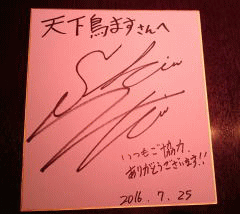 天下鳥ますさんへ
いつもご協力、
ありがとうございます!!
2016.7.25